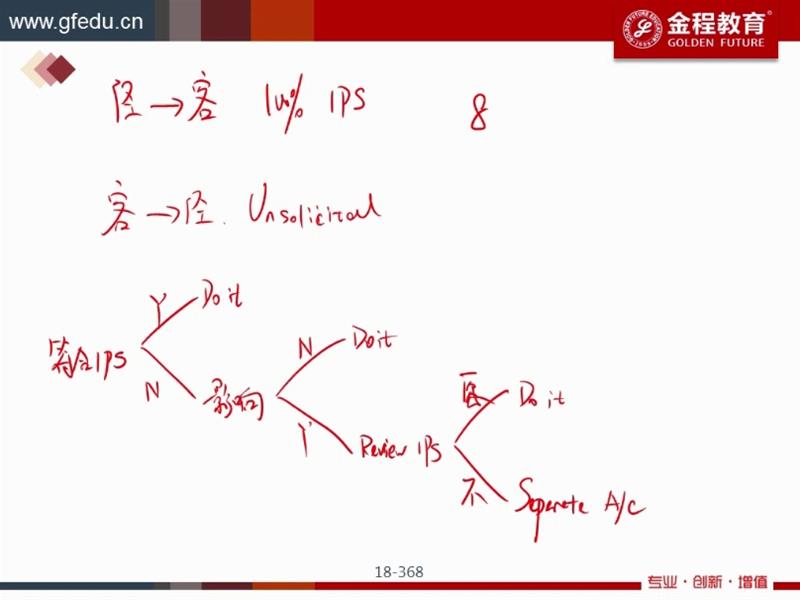 www.gfedu.cn
金程教育
GOLDEN FUTURE
径→客 100% IPS 8
客→径. Unsolicited
Y Do it
符合IPS
N 影响
N Do it
Y Review IPS
Do it
不 Seperate A/C
18-368
专业·创新·增值